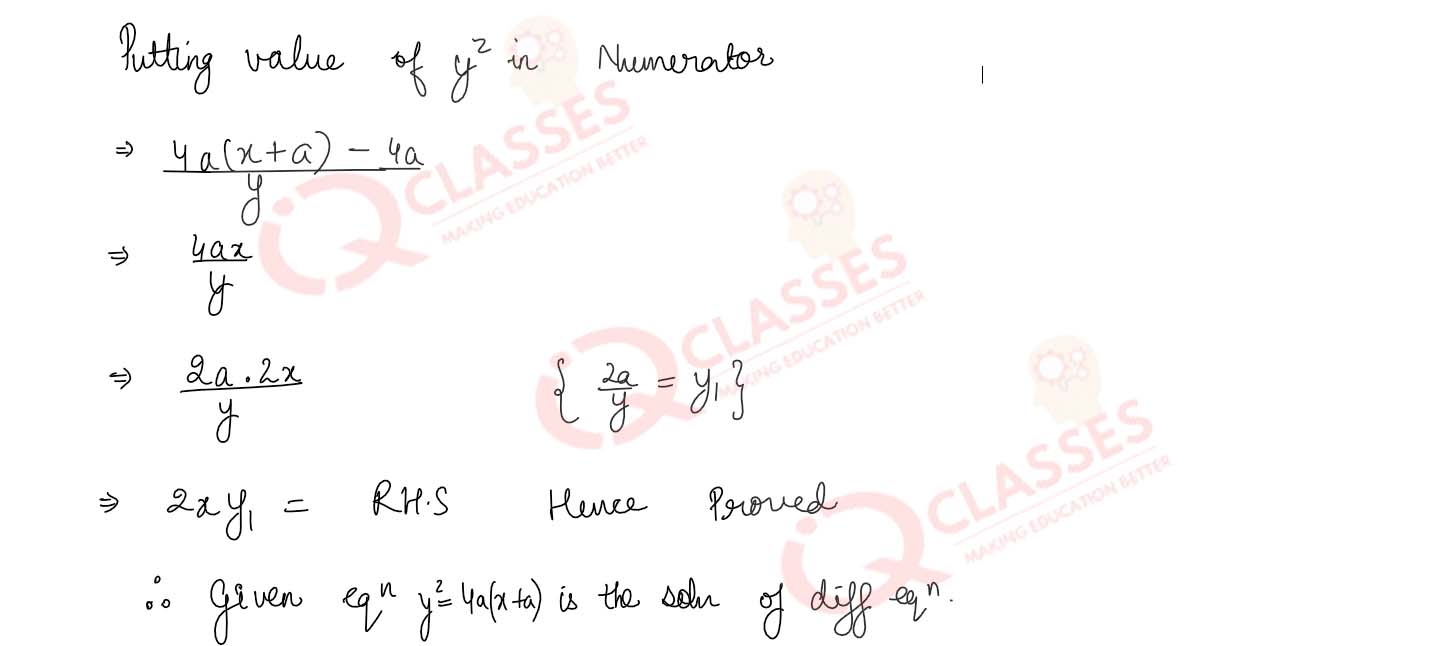 Putting value of y² in Numerator
⇒ 4a(x+a) − 4a
y
⇒ 4ax
y
⇒ 2a . 2x
y
{ 2a/y = y₁ }
⇒ 2xy₁ = R.H.S Hence Proved
∴ Given eqⁿ y²=4a(x+a) is the soln of diff eqⁿ.
iQ CLASSES
MAKING EDUCATION BETTER
iQ CLASSES
MAKING EDUCATION BETTER
iQ CLASSES
MAKING EDUCATION BETTER